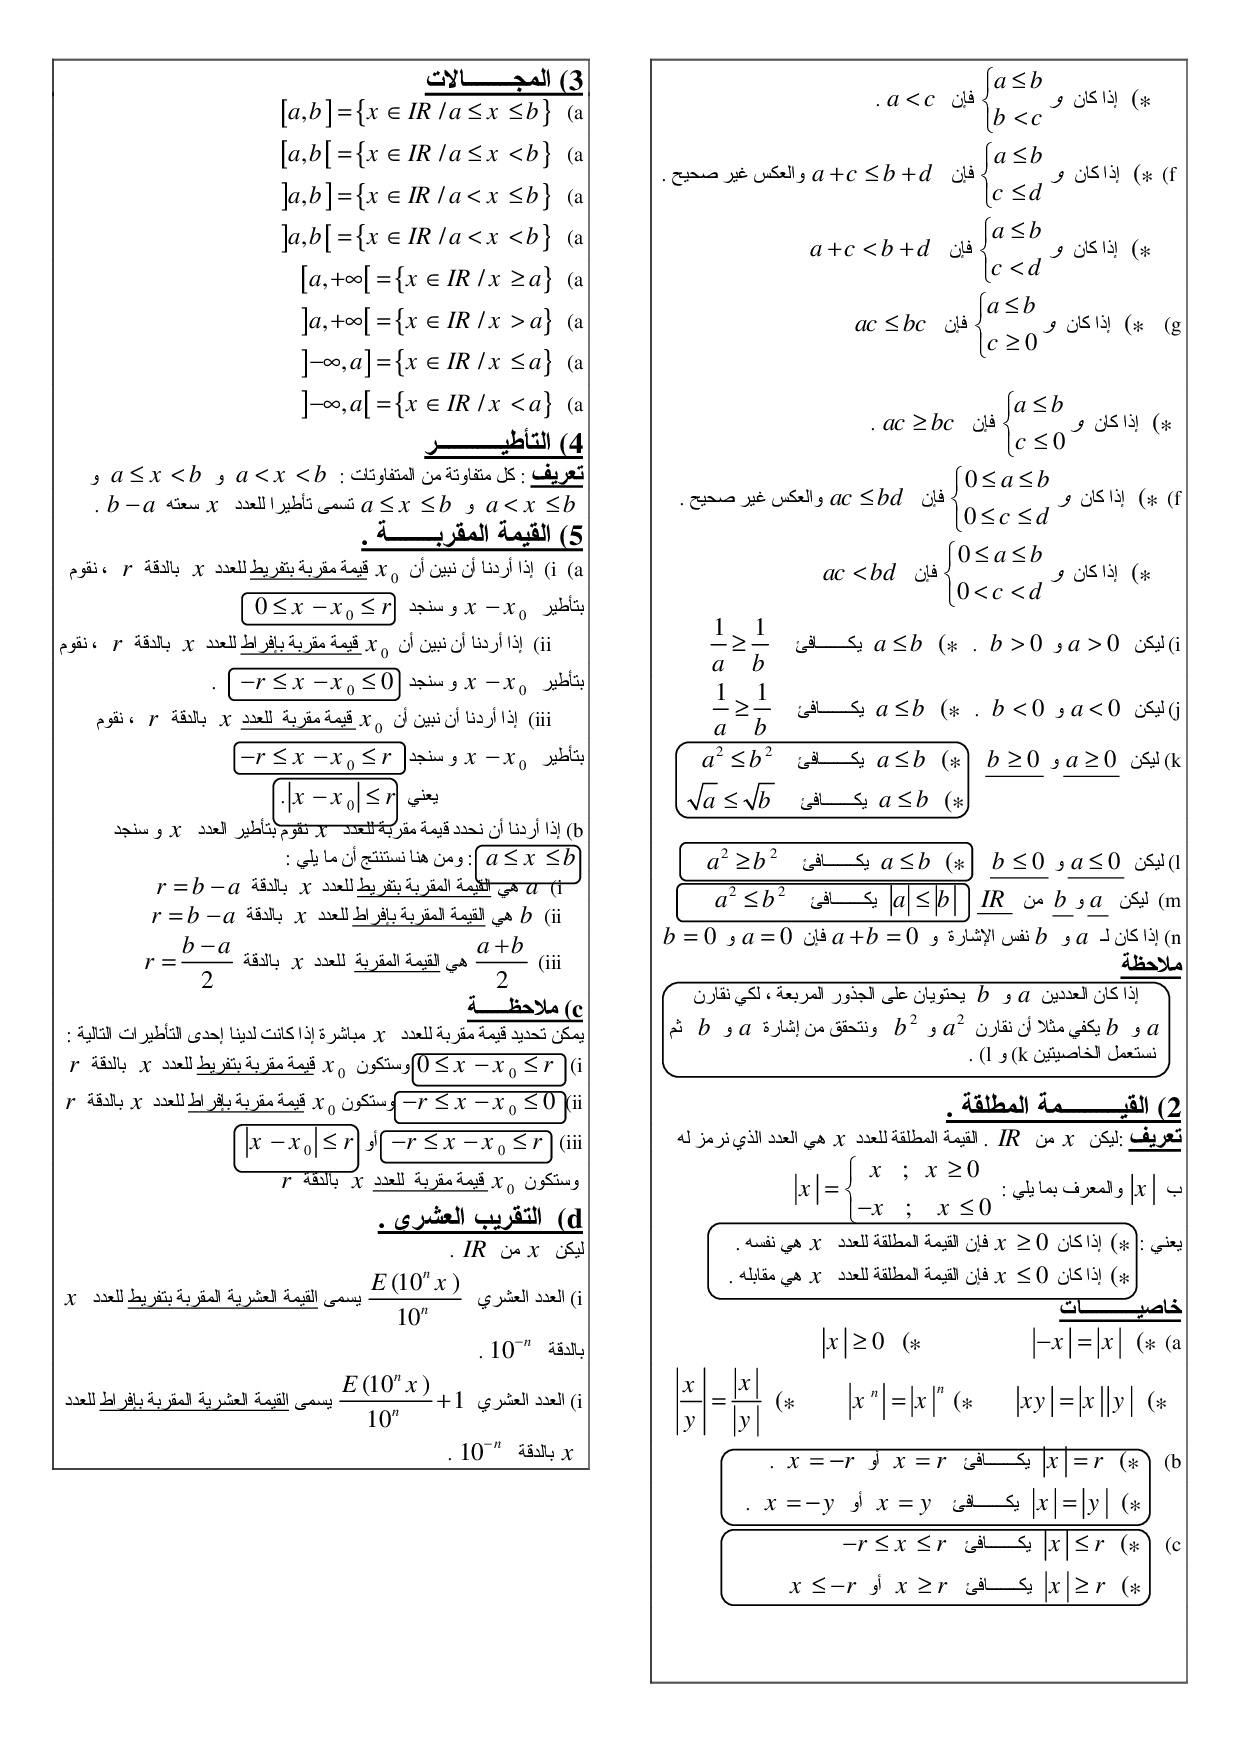 *) إذا كان و { a ≤ b ; b < c فإن a < c .
f) *) إذا كان و { a ≤ b ; c ≤ d فإن a + c ≤ b + d والعكس غير صحيح .
*) إذا كان و { a ≤ b ; c < d فإن a + c < b + d
g) *) إذا كان و { a ≤ b ; c ≥ 0 فإن ac ≤ bc
*) إذا كان و { a ≤ b ; c ≤ 0 فإن ac ≥ bc .
f) *) إذا كان و { 0 ≤ a ≤ b ; 0 ≤ c ≤ d فإن ac ≤ bd والعكس غير صحيح .
*) إذا كان و { 0 ≤ a ≤ b ; 0 < c < d فإن ac < bd
i) ليكن a > 0 و b > 0 . *) a ≤ b يكـــــافئ 1/a ≥ 1/b
j) ليكن a < 0 و b < 0 . *) a ≤ b يكـــــافئ 1/a ≥ 1/b
k) ليكن a ≥ 0 و b ≥ 0 *) a ≤ b يكـــــافئ a² ≤ b²
*) a ≤ b يكـــــافئ √a ≤ √b
l) ليكن a ≤ 0 و b ≤ 0 *) a ≤ b يكـــــافئ a² ≥ b²
m) ليكن a و b من IR |a| ≤ |b| يكـــــافئ a² ≤ b²
n) إذا كان لـ a و b نفس الإشارة و a + b = 0 فإن a = 0 و b = 0
ملاحظة
إذا كان العددين a و b يحتويان على الجذور المربعة ، لكي نقارن
a و b يكفي مثلا أن نقارن a² و b² ونتحقق من إشارة a و b ثم
نستعمل الخاصيتين k) و l) .
2) القيـــــــمة المطلقة .
تعريف :ليكن x من IR . القيمة المطلقة للعدد x هي العدد الذي نرمز له
ب |x| والمعرف بما يلي : |x| = { x ; x ≥ 0 / −x ; x ≤ 0
يعني : *) إذا كان x ≥ 0 فإن القيمة المطلقة للعدد x هي نفسه .
*) إذا كان x ≤ 0 فإن القيمة المطلقة للعدد x هي مقابله .
خاصيـــــــات
a) *) |−x| = |x| *) |x| ≥ 0
*) |xy| = |x||y| *) |xⁿ| = |x|ⁿ *) |x/y| = |x|/|y|
b) *) |x| = r يكـــــافئ x = r أو x = −r .
*) |x| = |y| يكـــــافئ x = y أو x = −y .
c) *) |x| ≤ r يكـــــافئ −r ≤ x ≤ r
*) |x| ≥ r يكـــــافئ x ≥ r أو x ≤ −r
3) المجـــــــالات
a) [a,b] = {x ∈ IR / a ≤ x ≤ b}
a) [a,b[ = {x ∈ IR / a ≤ x < b}
a) ]a,b] = {x ∈ IR / a < x ≤ b}
a) ]a,b[ = {x ∈ IR / a < x < b}
a) [a,+∞[ = {x ∈ IR / x ≥ a}
a) ]a,+∞[ = {x ∈ IR / x > a}
a) ]−∞,a] = {x ∈ IR / x ≤ a}
a) ]−∞,a[ = {x ∈ IR / x < a}
4) التأطيـــــــر
تعريف : كل متفاوتة من المتفاوتات : a < x < b و a ≤ x < b و
a < x ≤ b و a ≤ x ≤ b تسمى تأطيرا للعدد x سعته b − a .
5) القيمة المقربـــــــة .
a) i) إذا أردنا أن نبين أن x₀ قيمة مقربة بتفريط للعدد x بالدقة r ، نقوم
بتأطير x − x₀ و سنجد 0 ≤ x − x₀ ≤ r
ii) إذا أردنا أن نبين أن x₀ قيمة مقربة بإفراط للعدد x بالدقة r ، نقوم
بتأطير x − x₀ و سنجد −r ≤ x − x₀ ≤ 0 .
iii) إذا أردنا أن نبين أن x₀ قيمة مقربة للعدد x بالدقة r ، نقوم
بتأطير x − x₀ و سنجد −r ≤ x − x₀ ≤ r
يعني |x − x₀| ≤ r .
b) إذا أردنا أن نحدد قيمة مقربة للعدد x نقوم بتأطير العدد x و سنجد
a ≤ x ≤ b : ومن هنا نستنتج أن ما يلي :
i) a هي القيمة المقربة بتفريط للعدد x بالدقة r = b − a
ii) b هي القيمة المقربة بإفراط للعدد x بالدقة r = b − a
iii) (a + b)/2 هي القيمة المقربة للعدد x بالدقة r = (b − a)/2
c) ملاحظـــــة
يمكن تحديد قيمة مقربة للعدد x مباشرة إذا كانت لدينا إحدى التأطيرات التالية :
i) 0 ≤ x − x₀ ≤ r وستكون x₀ قيمة مقربة بتفريط للعدد x بالدقة r
ii) −r ≤ x − x₀ ≤ 0 وستكون x₀ قيمة مقربة بإفراط للعدد x بالدقة r
iii) −r ≤ x − x₀ ≤ r أو |x − x₀| ≤ r
وستكون x₀ قيمة مقربة للعدد x بالدقة r
d) التقريب العشري .
ليكن x من IR .
i) العدد العشري E(10ⁿx)/10ⁿ يسمى القيمة العشرية المقربة بتفريط للعدد x
بالدقة 10⁻ⁿ .
i) العدد العشري E(10ⁿx)/10ⁿ + 1 يسمى القيمة العشرية المقربة بإفراط للعدد
x بالدقة 10⁻ⁿ .